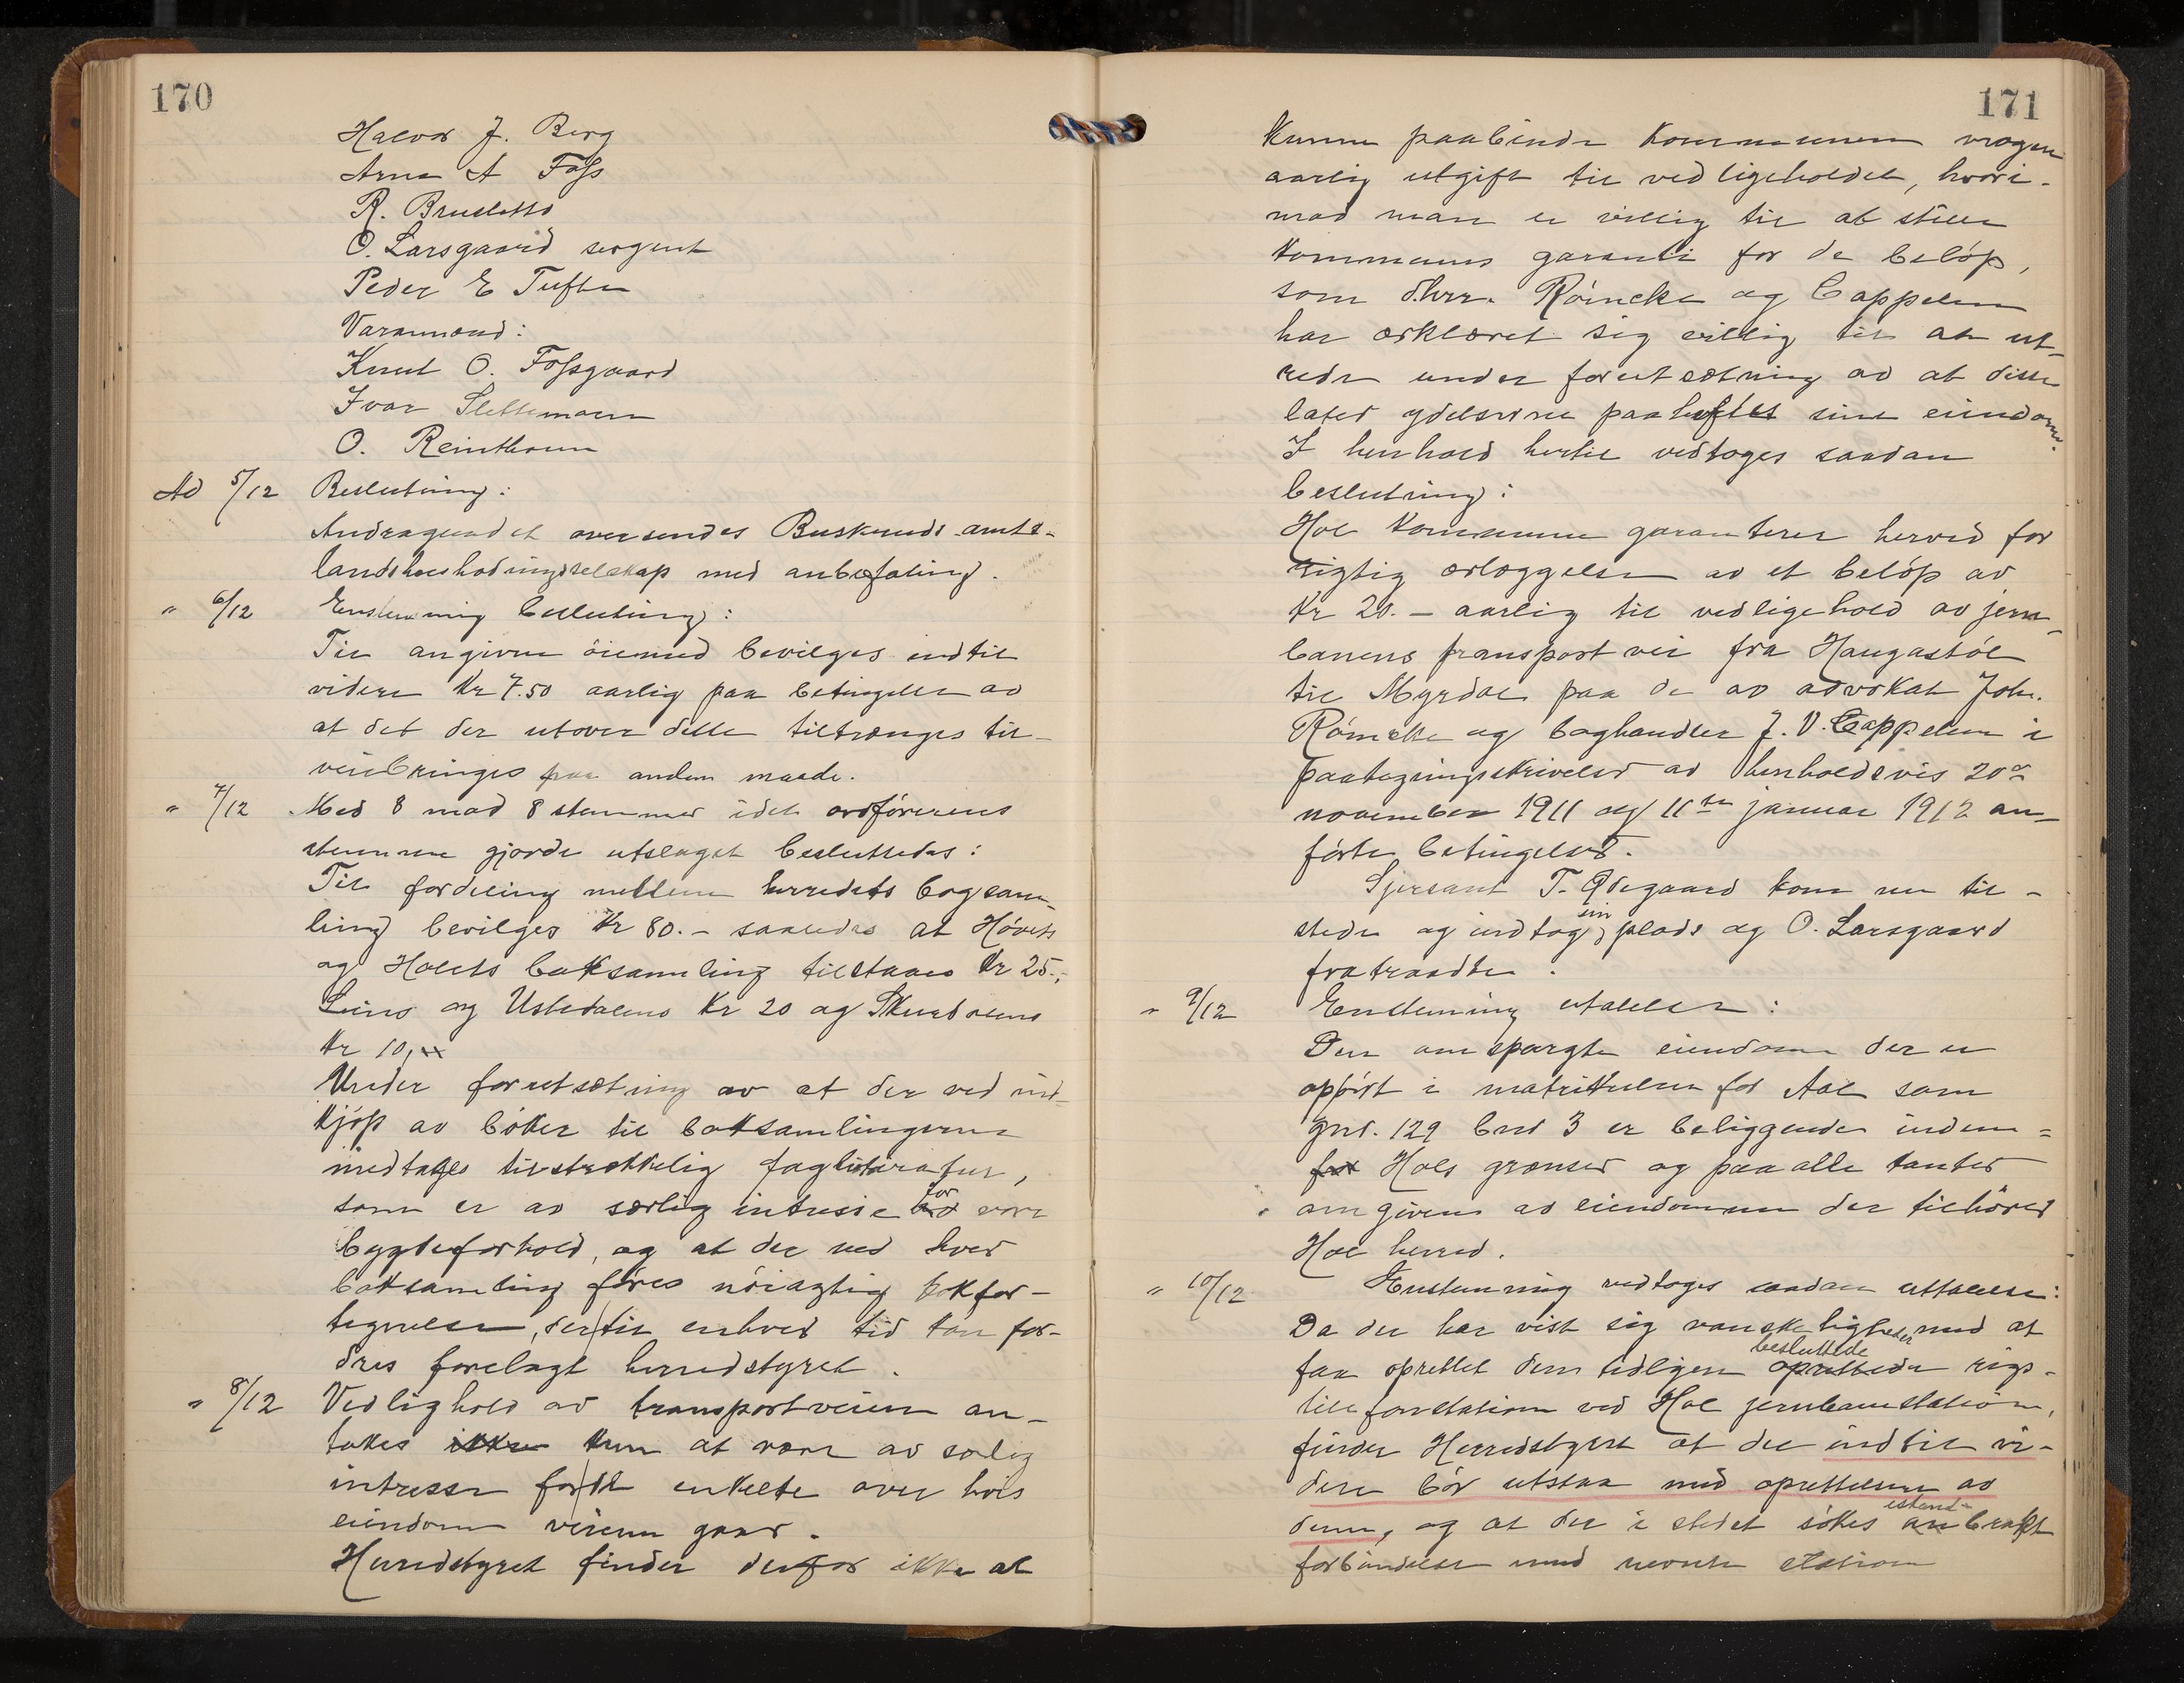 170
Halvor J. Berg
Arne A Foss
R. Brusletto
O. Larsgaard sergent
Peder E Tufte
Varamænd:
Knut O. Fossgaard
Ivar Slettemoen
O. Reinthon
Ad 5/12 Beslutning:
Andragendet oversendes Buskeruds amts-
landshusholdningsselskap med anbefaling.
" 6/12 Enstemmig beslutning:
Til angivne öiemed bevilges indtil
videre Kr 7.50 aarlig paa betingelse av
at det der utover dette tiltrænges til-
veiebringes paa anden maade.
" 7/12 Med 8 mod 8 stemmer idet ordförerens
stemme gjorde utslaget besluttedes:
Til fordeling mellem herredets bogsam-
ling bevilges Kr 80.- saaledes at Hövets
og Holets boksamling tilstaaes Kr 25.-,
Liens og Ustedalens Kr 20 og Skurdalens
Kr 10,-
Under forutsætning av at der ved ind-
kjöp av böker til boksamlingerne
medtages tilstrækkelig faglitteratur,
som er av særlig intresse for vore
bygdeforhold, og at der ved hver
boksamling föres nöiagtig bokfor-
tegnelse, der til enhver tid kan for-
dres forelagt herredstyret.
" 8/12 Vedlighold av transportveien an-
takes ikke kun at være av særlig
intresse for de enkelte over hvis
eiendom veien gaar.
Herredstyret finder derfor ikke at
171
kunne paabinde kommunen nogen
aarlig utgift til vedligeholdet, hvori-
mod man er villig til at stille
kommunens garanti for de belöp,
som d'hrr. Röincke og Cappelen
har erklæret sig villig til at ut-
rede under forutsætning av at disse
later ydelserne paaheftes sine eiendomme.
I henhold hertil vedtoges saadan
beslutning:
Hol kommune garanterer herved for
rigtig erlæggelse av et belöp av
Kr 20.- aarlig til vedligehold av jern-
banens transportvei fra Haugastöl
til Myrdal paa de av advokat Joh.
Röincke og boghandler J. V. Cappelen i
paategningsskrivelser av henholdsvis 20de
november 1911 og 11te januar 1912 an-
förte betingelser.
Sjersant T. Ødegaard kom nu til-
stede og indtog sin plads og O. Larsgaard
fratraadte.
" 9/12 Enstemmig uttalelse:
Den omspurgte eiendom der er
opfört i matrikulen for Aal som
gnr. 129 bnr 3 er beliggende inden-
for Hols grænser og paa alle kanter
omgiven av eiendommer der tilhörer
Hol herred.
" 10/12 Enstemmig vedtoges saadan uttalelse:
Da det har vist sig vanskeligheter med at
faa oprettet den tidligere oprettede besluttede rigs-
telefonstation ved Hol jernbanestation,
finder Herredstyret at det indtil vi-
dere bör utstaa med oprettelsen av
denne, og at der i stedet sökes an istand-brakt
forbindelse med nevnte station